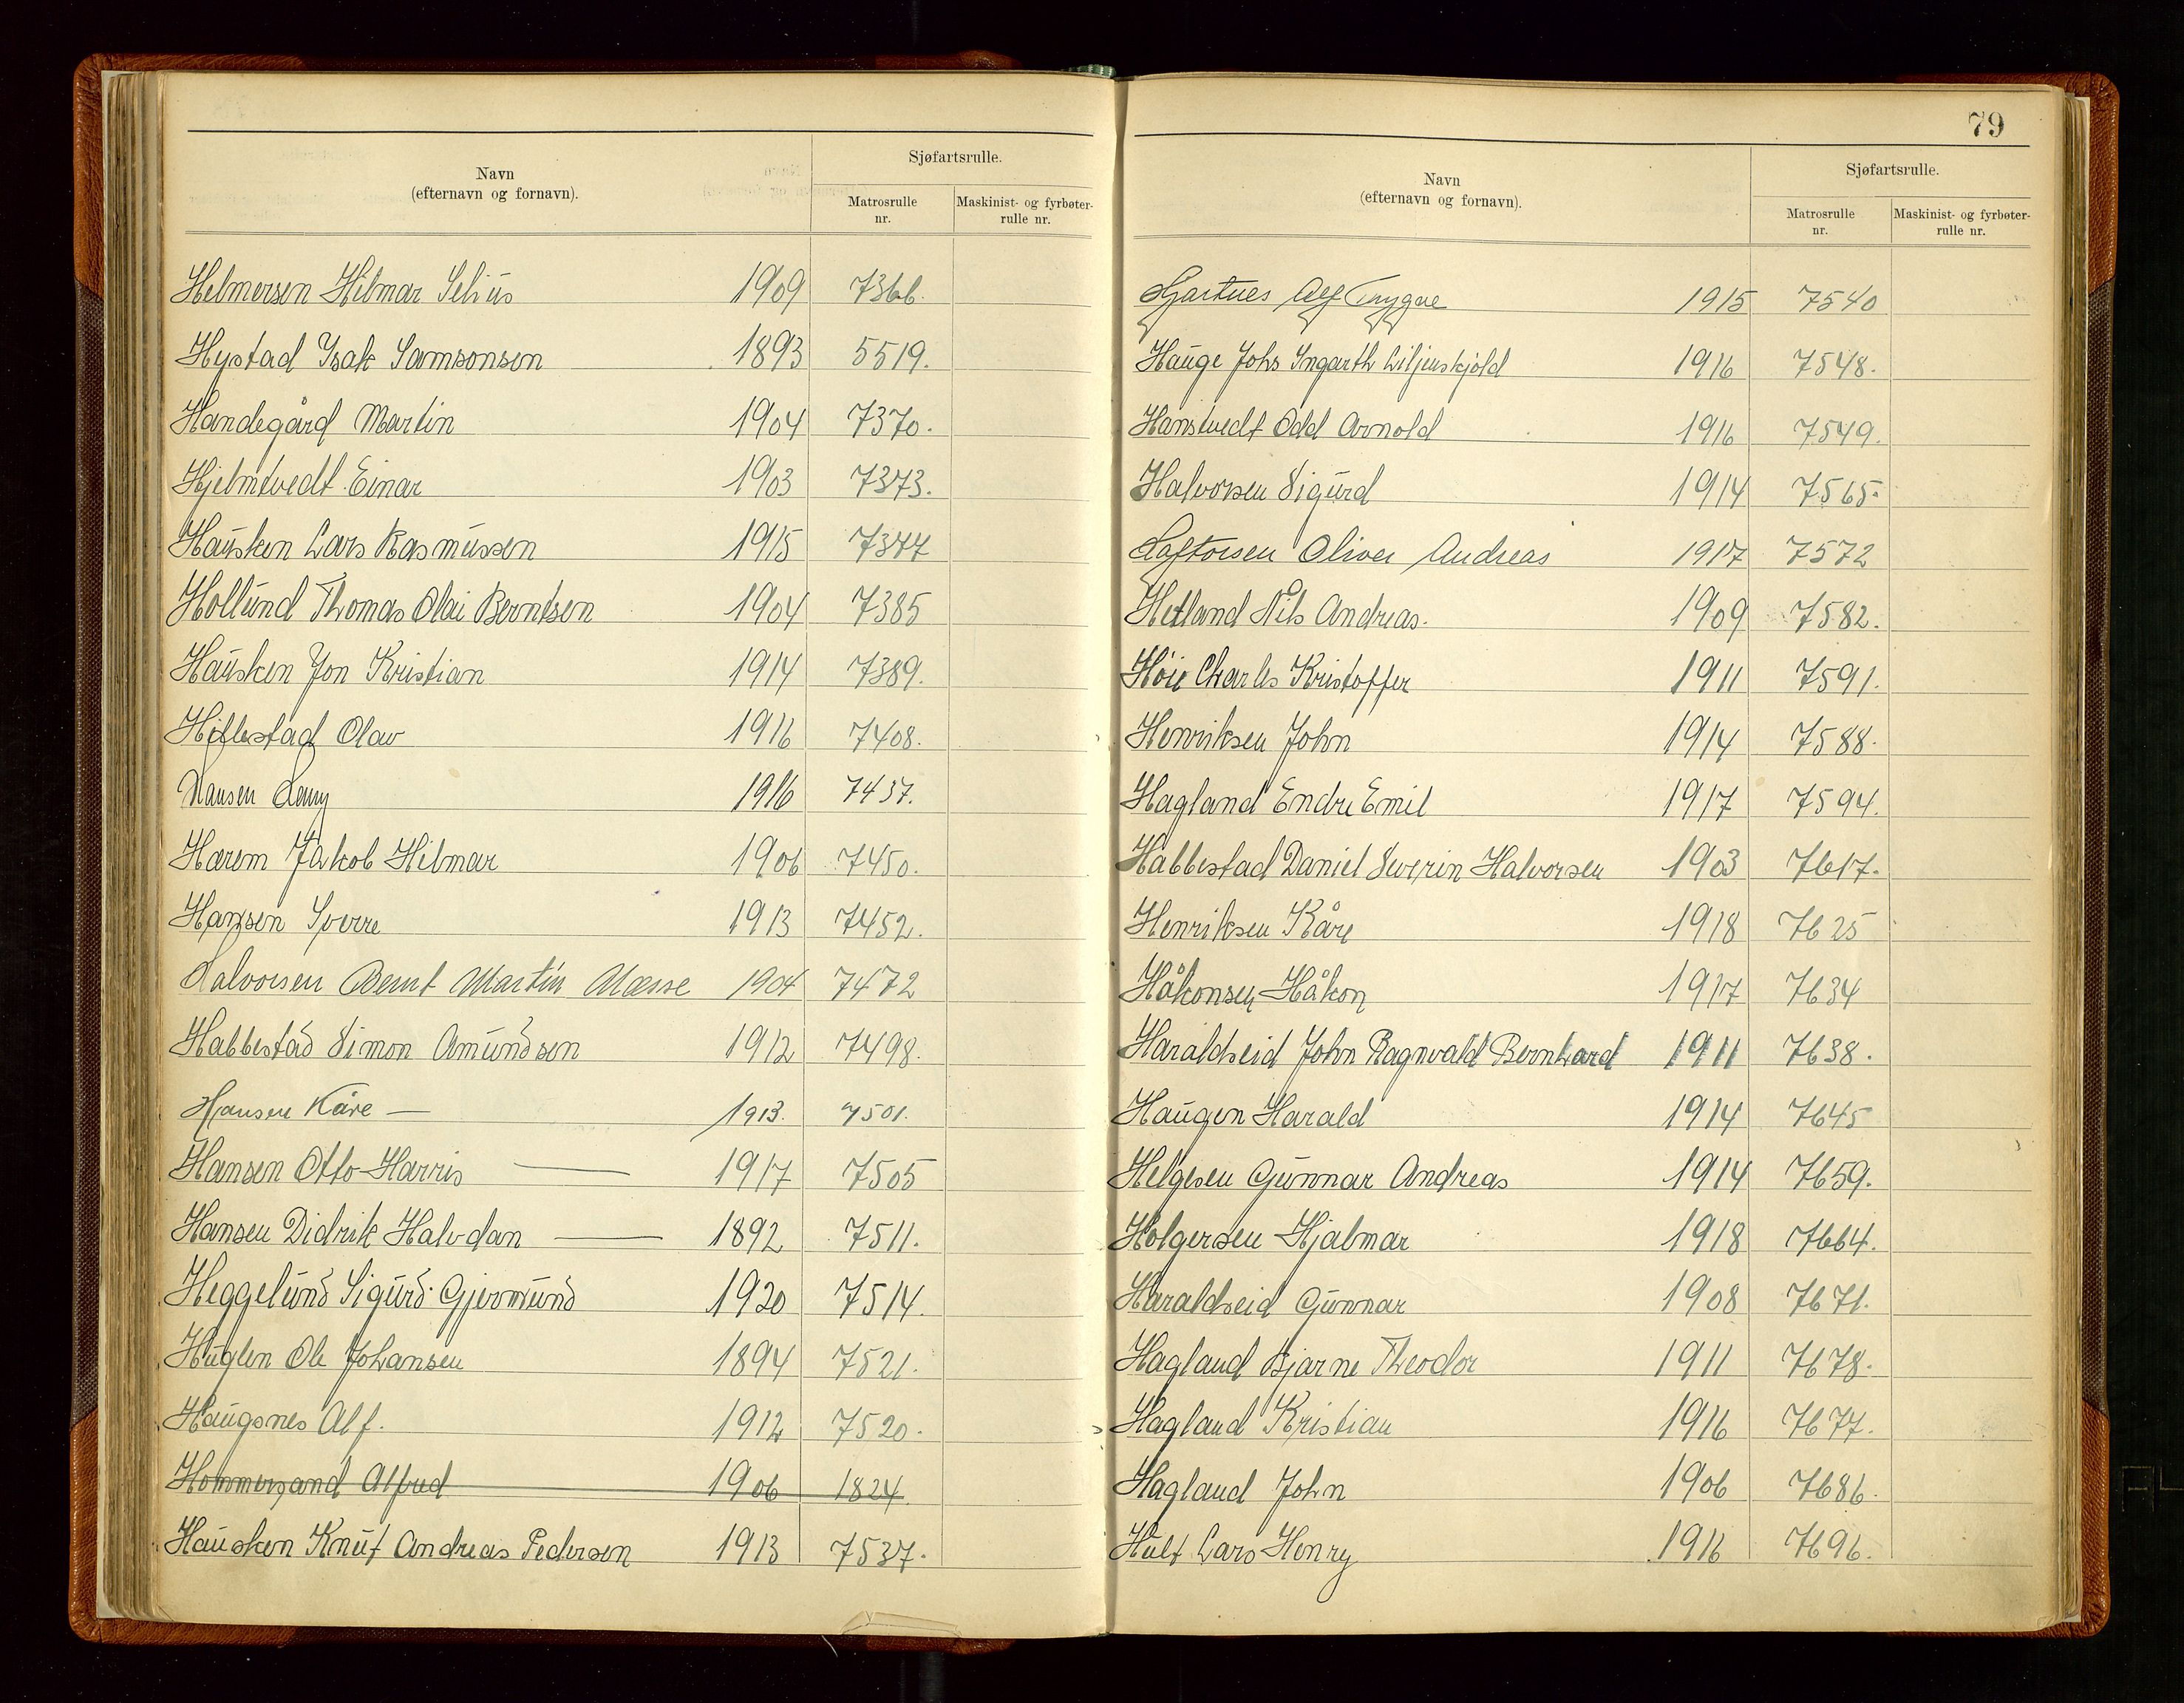 Navn
(efternavn og fornavn).
Sjøfartsrulle.
Matrosrulle
nr.
Maskinist- og fyrbøter-
rulle nr.
Helmersen Hilmar 1909 7366.
Hystad Isak Samsonsen 1893 5519.
Handegård Martin 1904 7370.
Hjelmtvedt Einar 1903 7373.
Hausken Lars Rasmussen 1915 7377
Hollund Thomas Olai Berntsen 1904 7385
Hausken Jon Kristian 1914 7389.
Hillestad Olav 1916 7408.
Hansen 1916 7437.
Harem Jakob Hilmar 1906 7450.
Hansen Sverre 1913 7452.
Halvorsen Bernt Martin Mæsse 1904 7472
Habbestad Simon Amundsen 1912 7498.
Hansen Kåre — 1913. 7501.
Hansen Otto Harris — 1917 7505
Hansen Didrik Halvdan — 1892 7511.
Heggelund Sigurd Gjermund 1920 7514.
Huglen Ole Johansen 1894 7521.
Haugsnes Alf. 1912 7520.
Hommersand Alfred 1906 1824.
Hausken Knut Andreas Pedersen 1913 7537.
79
Navn
(efternavn og fornavn).
Sjøfartsrulle.
Matrosrulle
nr.
Maskinist- og fyrbøter-
rulle nr.
Alf Trygve 1915 7540
Hauge Johs Ingarth Liljenskjold 1916 7548.
Hanstvedt Odd Arnold 1916 7549.
Halvorsen Sigurd 1914 7565.
Haftorsen Oliver Andreas 1917 7572
Hetland Nils Andreas. 1909 7582.
Høie Charles Kristoffer 1911 7591.
Henriksen John 1914 7588.
Hagland Endre Emil 1917 7594.
Habbestad Daniel Severin Halvorsen 1903 7617.
Henriksen Kåre 1918 7625
Håkonsen Håkon 1917 7634
Haraldseid John Ragnvald Bernhard 1911 7638.
Haugen Harald 1914 7645
Helgesen Gunnar Andreas 1914 7659.
Holgersen Hjalmar 1918 7664.
Haraldseid Gunnar 1908 7671.
Hagland Bjarne Theodor 1911 7678.
Hagland Kristian 1916 7677.
Hagland John 1906 7686.
Hult Lars Henry 1916 7696.